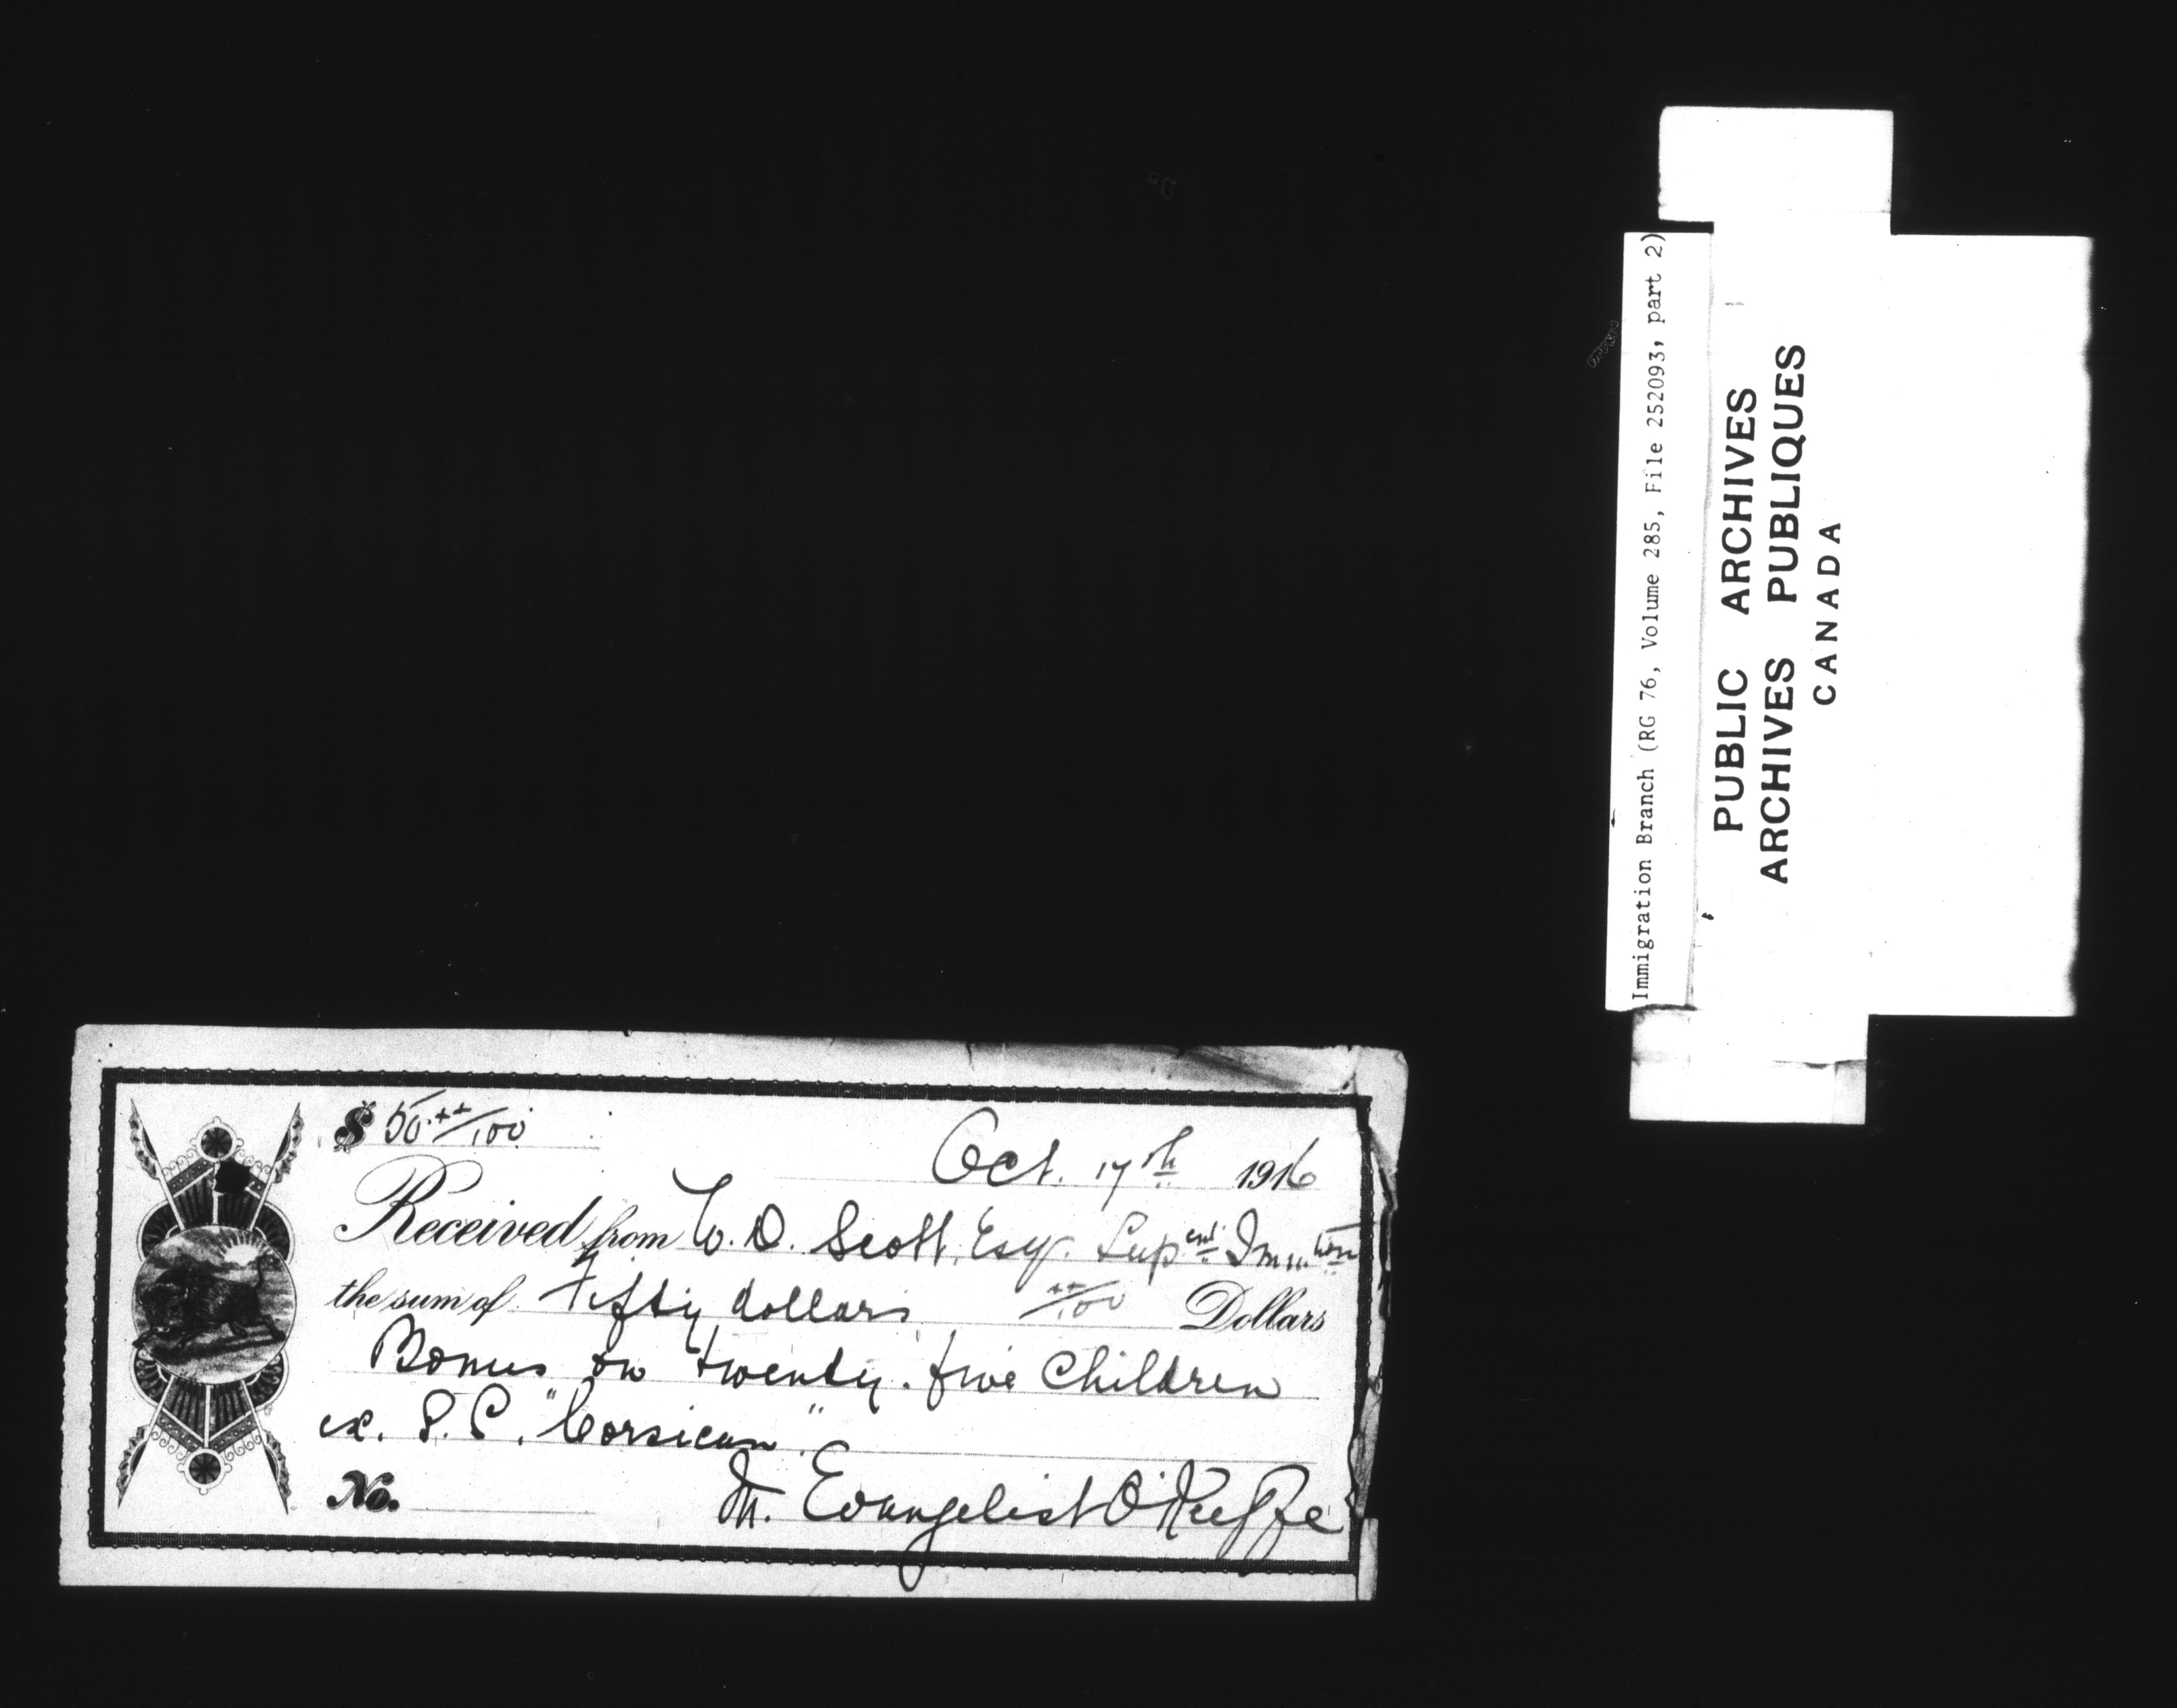 $ 50.xx/100
Oct. 17th 1916
Received from W. D. Scott, Esq. Supent Immtion
the sum of Fifty dollars xx/100 Dollars
Bonus on twenty-five Children
ex. S.S. "Corsican".
No. M. Evangelist O'Keeffe
Immigration Branch (RG 76, Volume 285, File 252093, part 2)
PUBLIC ARCHIVES
ARCHIVES PUBLIQUES
CANADA